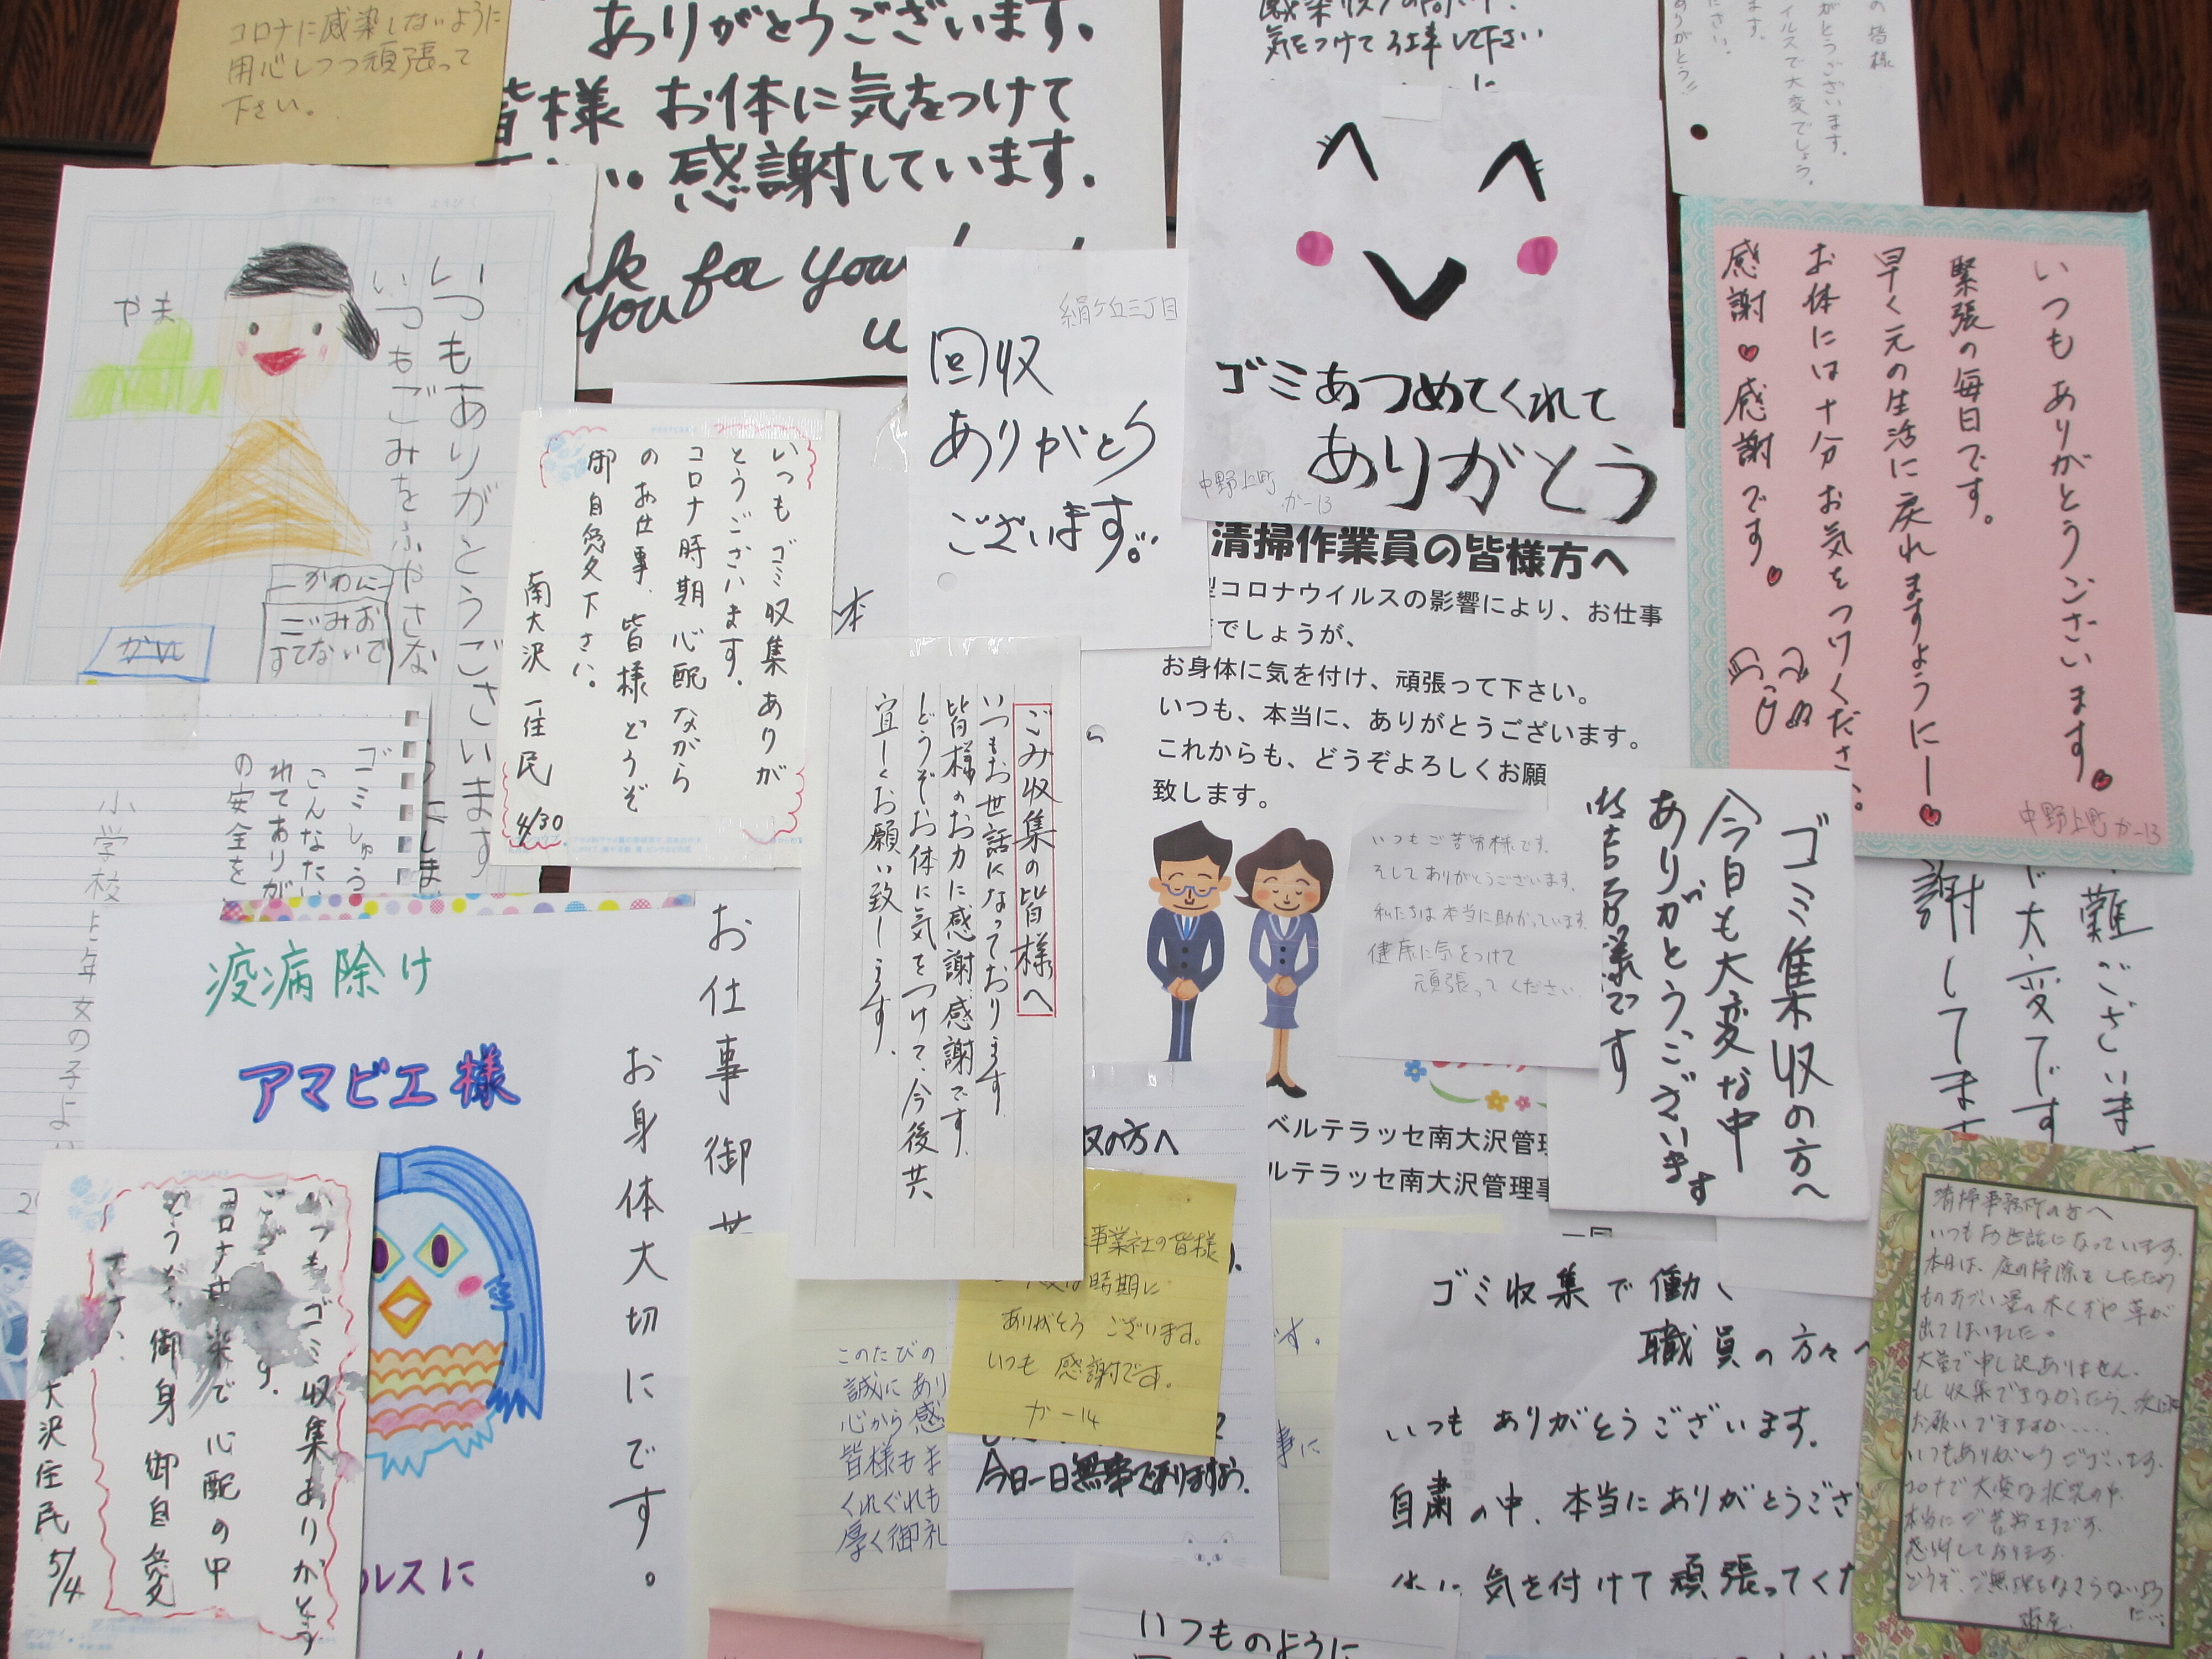 コロナに感染しないように
用心しつつ頑張って
下さい。
ありがとうございます。
皆様 お体に気をつけて
感謝しています。
you for your
気をつけて
の皆様
がとうございます。
イルスで大変でしょう。
ます。
ださい。
ありがとう!!
いつもありがとうございます
いつもごみをふやさな
やま
かわに
ごみお
すてないで
いつもゴミ収集ありが
とうございます。
コロナ時期心配ながら
のお仕事、皆様どうぞ
御自愛下さい。
南大沢 一住民 4/30
本
絹ケ丘三丁目
回収
ありがとう
ございます。
ゴミあつめてくれて
ありがとう
中野上町
か-13
いつもありがとうございます。
緊張の毎日です。
早く元の生活に戻れますように
お体には十分お気をつけくださ
感謝 感謝です。
中野上町 か-13
清掃作業員の皆様方へ
型コロナウイルスの影響により、お仕事
でしょうが、
お身体に気を付け、頑張って下さい。
いつも、本当に、ありがとうございます。
これからも、どうぞよろしくお願
致します。
ベルテラッセ南大沢管理
ルテラッセ南大沢管理事
いつもご苦労様です。
そしてありがとうございます。
私たちは本当に助かっています。
健康に気をつけて
頑張ってください。
ゴミ集収の方へ
今日も大変な中
ありがとうございます
御苦労様です
難ございま
大変です
謝してます
ごみ収集の皆様へ
いつもお世話になっております
皆様のお力に感謝、感謝です。
どうぞお体に気をつけて、今後共
宜しくお願い致します。
ゴミしゅう
こんなたい
れてありが
の安全を
小学校上年女の子より
疫病除け
アマビエ様
ルスに
お仕事御苦
お身体大切にです。
いつもゴミ収集ありがとう
ござ す。
コロナ 染で心配の中
どうぞ 御身御自愛
ださい。
大沢住民 5/4
収の方へ
事業社の皆様
時期に
ありがとうございます。
いつも感謝です。
か-14
今日一日無事でありますよう。
このたびの
誠にあり
心から感
皆様もま
くれぐれも
厚く御礼
す。
事に
ゴミ収集で働く
職員の方々へ
いつもありがとうございます。
自粛の中、本当にありがとうござ
気を付けて頑張ってくだ
いつものように
清掃事務所の方へ
いつもお世話になっています。
本日は、庭の掃除をしたため
ものすごい量の木くずや草が
出てしまいました。
大量で申し訳ありません。
もし収集できなかったら、次回に
お願いできますか.....
いつもありがとうございます。
コロナで大変な状況の中、
本当にご苦労さまです。
感謝しております。
どうぞ、ご無理をなさらないよう
に…